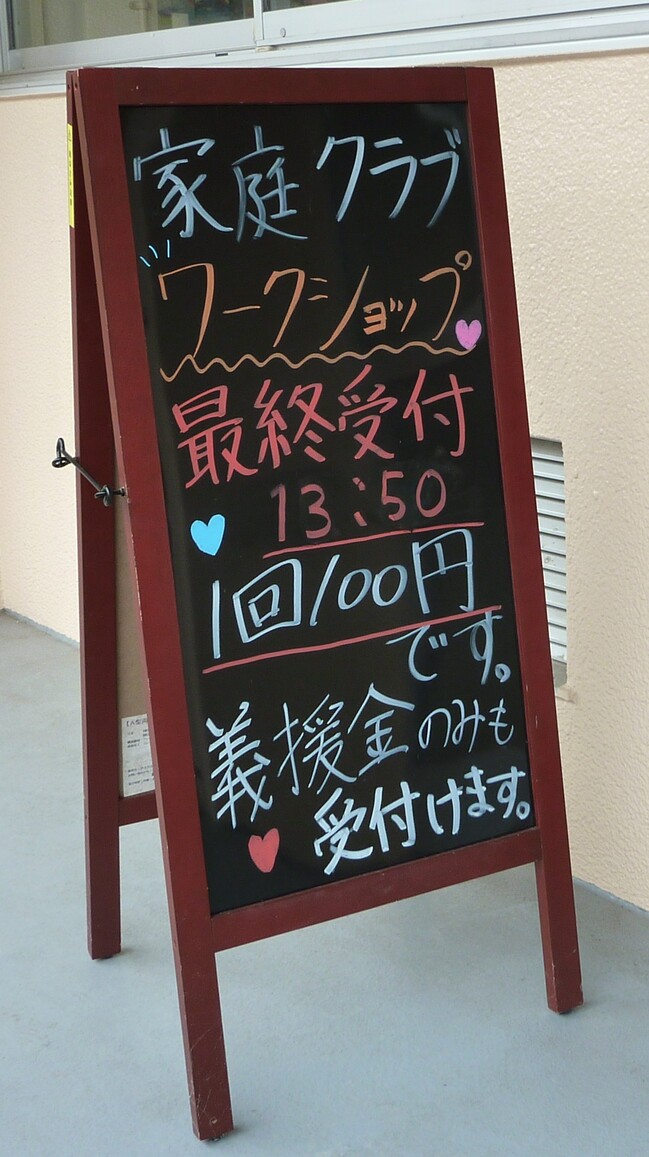 家庭クラブ
ワークショップ
最終受付
13:50
1回100円
です。
義援金のみも
受付けます。